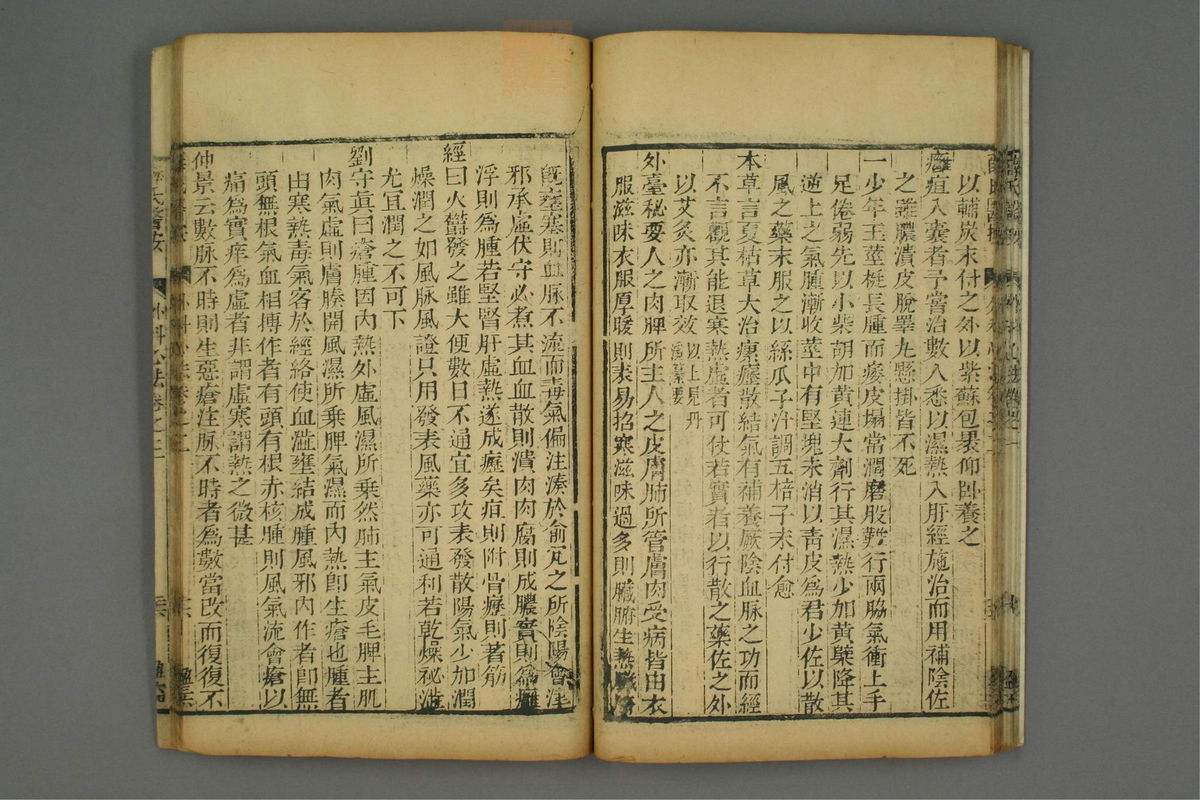 以輔炭末付之外以紫蘇包裹仰臥養之
癰疽入囊者予嘗治數人悉以濕熱入肝經施治而用補陰佐
之雖膿潰皮脫睪丸懸掛皆不死
一少年玉莖挺長腫而痿皮塌常潤磨股難行兩脇氣衝上手
足倦弱先以小柴胡加黃連大劑行其濕熱少加黃檗降其
逆上之氣腫漸收莖中有堅塊未消以青皮為君少佐以散
風之藥末服之以絲瓜子汁調五棓子末付愈
本草言夏枯草大治瘰癧散結氣有補養厥陰血脉之功而經
不言觀其能退寒熱虛者可仗若實者以行散之藥佐之外
以艾灸亦漸取效
以上見丹
溪纂要
外臺秘要人之肉脾所主人之皮膚肺所管膚肉受病皆由衣
服滋味衣服厚暖則表易招寒滋味過多則臟腑生熱
既壅塞則血脉不流而毒氣偏注湊於俞穴之所陰陽會津
邪承虛伏守必煮其血血散則潰肉肉腐則成膿實則為癰
浮則為腫若堅腎肝虛熱遂成癧矣疽則附骨療則著筋
經曰火鬱發之雖大便數日不通宜多攻表發散陽氣少加潤
燥潤之如風脉風證只用發表風藥亦可通利若乾燥祕澁
尤宜潤之不可下
劉守真曰瘡腫因內熱外虛風濕所乘然肺主氣皮毛脾主肌
肉氣虛則膚腠開風濕所乘脾氣濕而內熱卽生瘡也腫者
由寒熱毒氣客於經絡使血澁壅結成腫風邪內作者卽無
頭無根氣血相搏作者有頭有根赤核腫則風氣流會瘡以
痛為實痒為虛者非謂虛寒謂熱之微甚
仲景云數脉不時則生惡瘡注脉不時者為數當改而復復不
外科心法卷之二